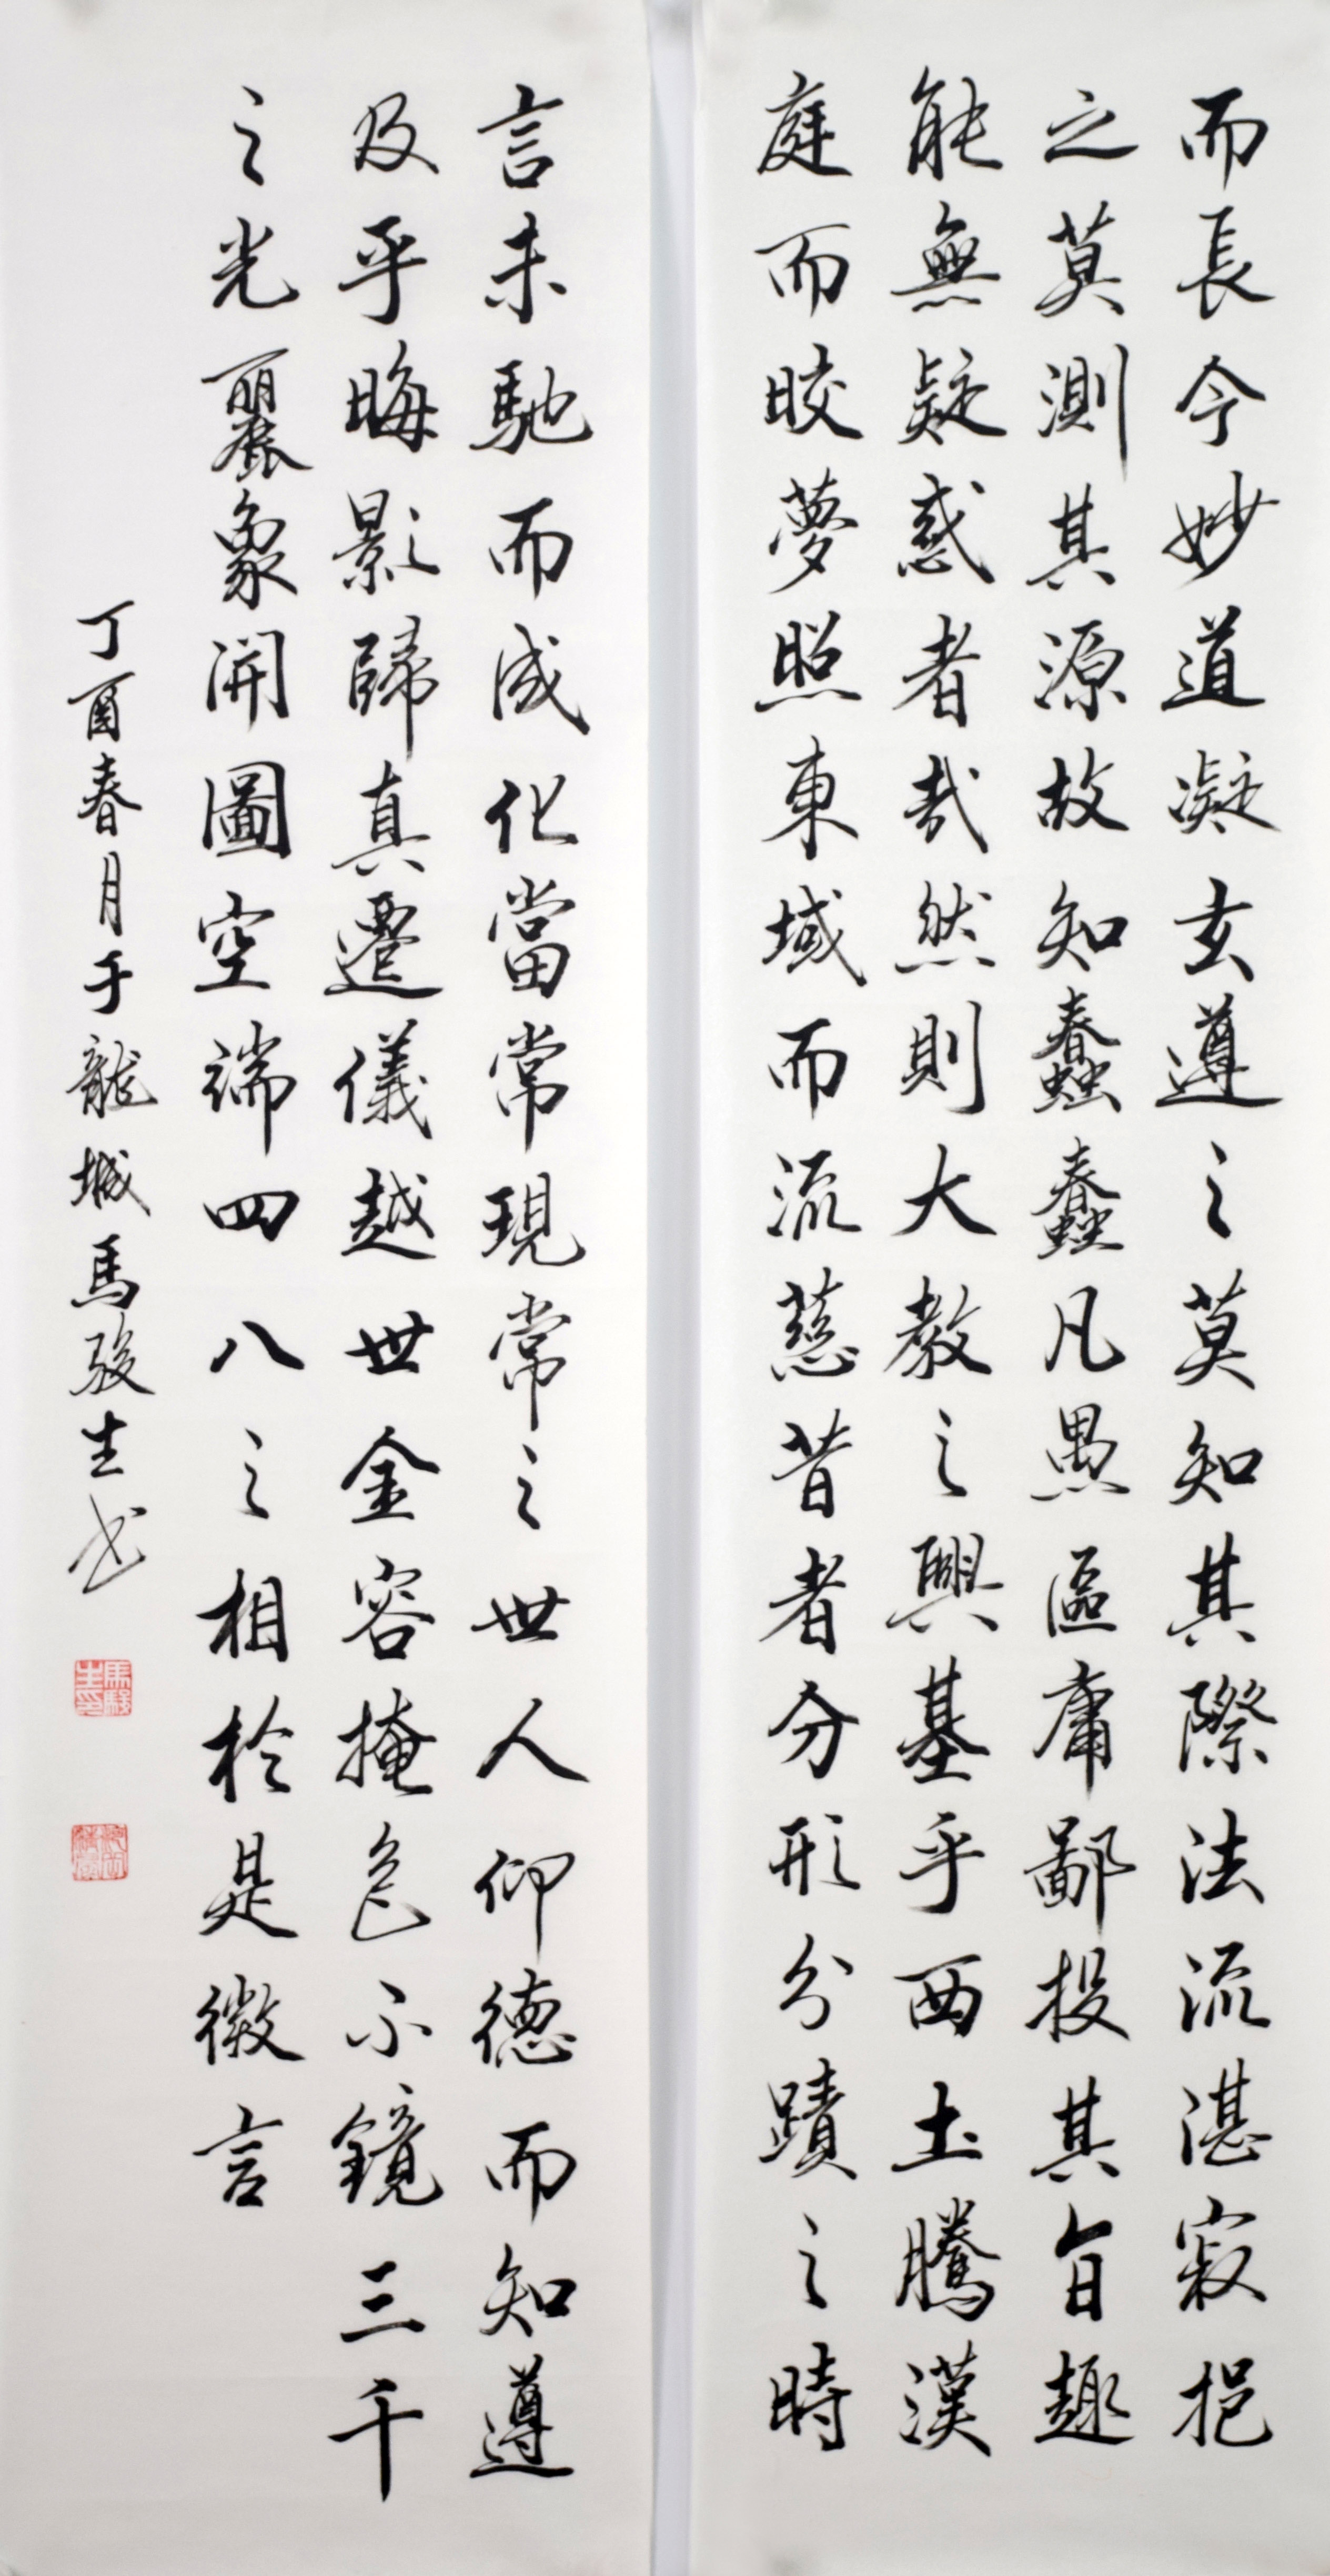 而長今妙道凝玄遵之莫知其際法流湛寂挹
之莫測其源故知蠢蠢凡愚區庸鄙投其旨趣
能無疑惑者哉然則大教之興基乎西土騰漢
庭而皎夢照東域而流慈昔者分形分蹟之時
言未馳而成化當常現常之世人仰德而知遵
及乎晦影歸真遷儀越世金容掩色不鏡三千
之光麗象開圖空端四八之相於是微言
丁酉春月于龍城馬駿生书
馬駿生印